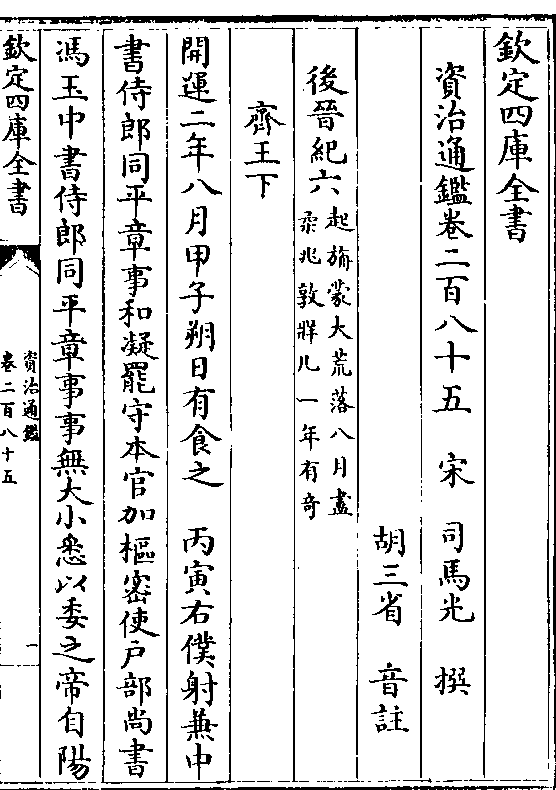 欽定四庫全書
資治通鑑卷二百八十五　宋　司馬光　撰
胡三省　音註
後晉紀六起旃蒙大荒落八月盡
柔兆敦牂凡一年有奇
齊王下
開運二年八月甲子朔日有食之　丙寅右僕射兼中
書侍郎同平章事和凝罷守本官加樞密使户部尚書
馮玉中書侍郎同平章事事無大小悉以委之帝自陽
欽定四庫全書
資治通鑑
卷二百八十五
一